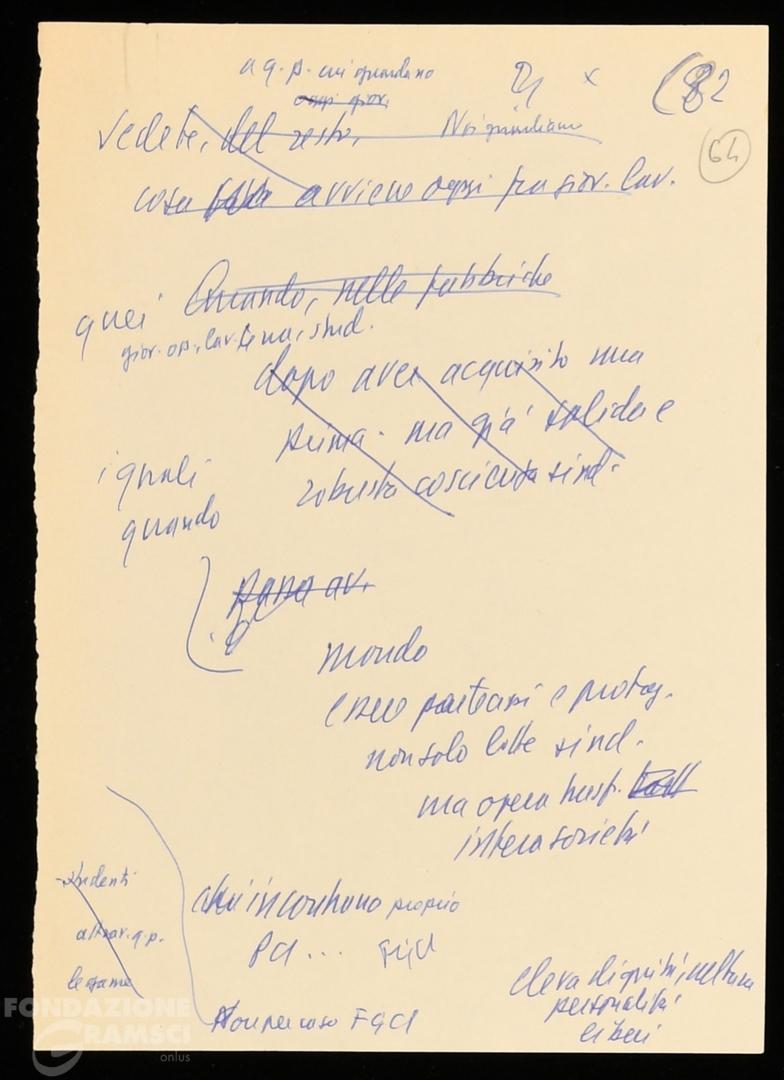 a q. p. cui guardano
oggi giov.
x
82
64
Vedete, del resto, Noi guardiamo
cosa avviene oggi fra giov. lav.
quei Quando, nelle fabbriche
giov. op., lav. tenia, stud.
dopo aver acquisito una
prima - ma già solida e
robusta coscienza sind.
i quali
quando
mondo
esser partecipi e protag.
non solo lotte sind.
ma opera trasf.
intera società
studenti
attrav. q. p.
legame
incontrano proprio
PCI ... FGCI
Non per caso FGCI
eleva dignità, cultura
personalità
liberi
FONDAZIONE
GRAMSCI
onlus